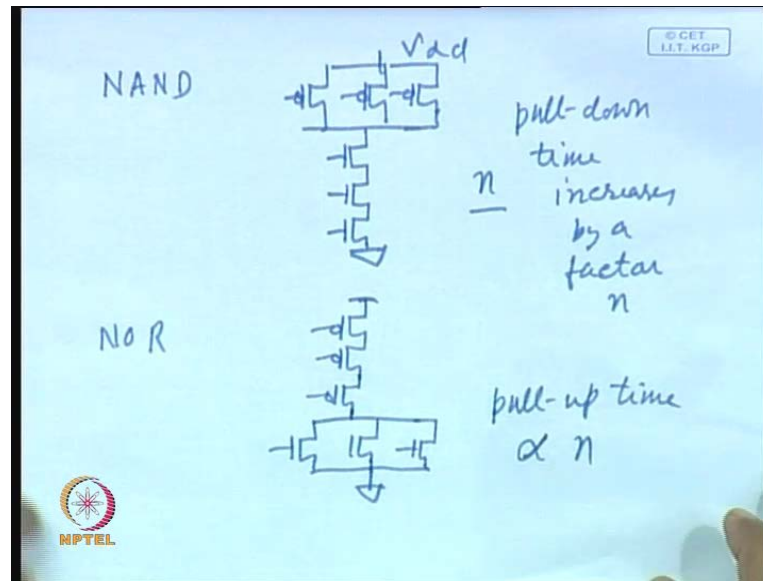 © CET
I.I.T. KGP
NAND
Vdd
pull-down
time
n
increases
by a
factor
n
NOR
pull-up time
∝ n
NPTEL